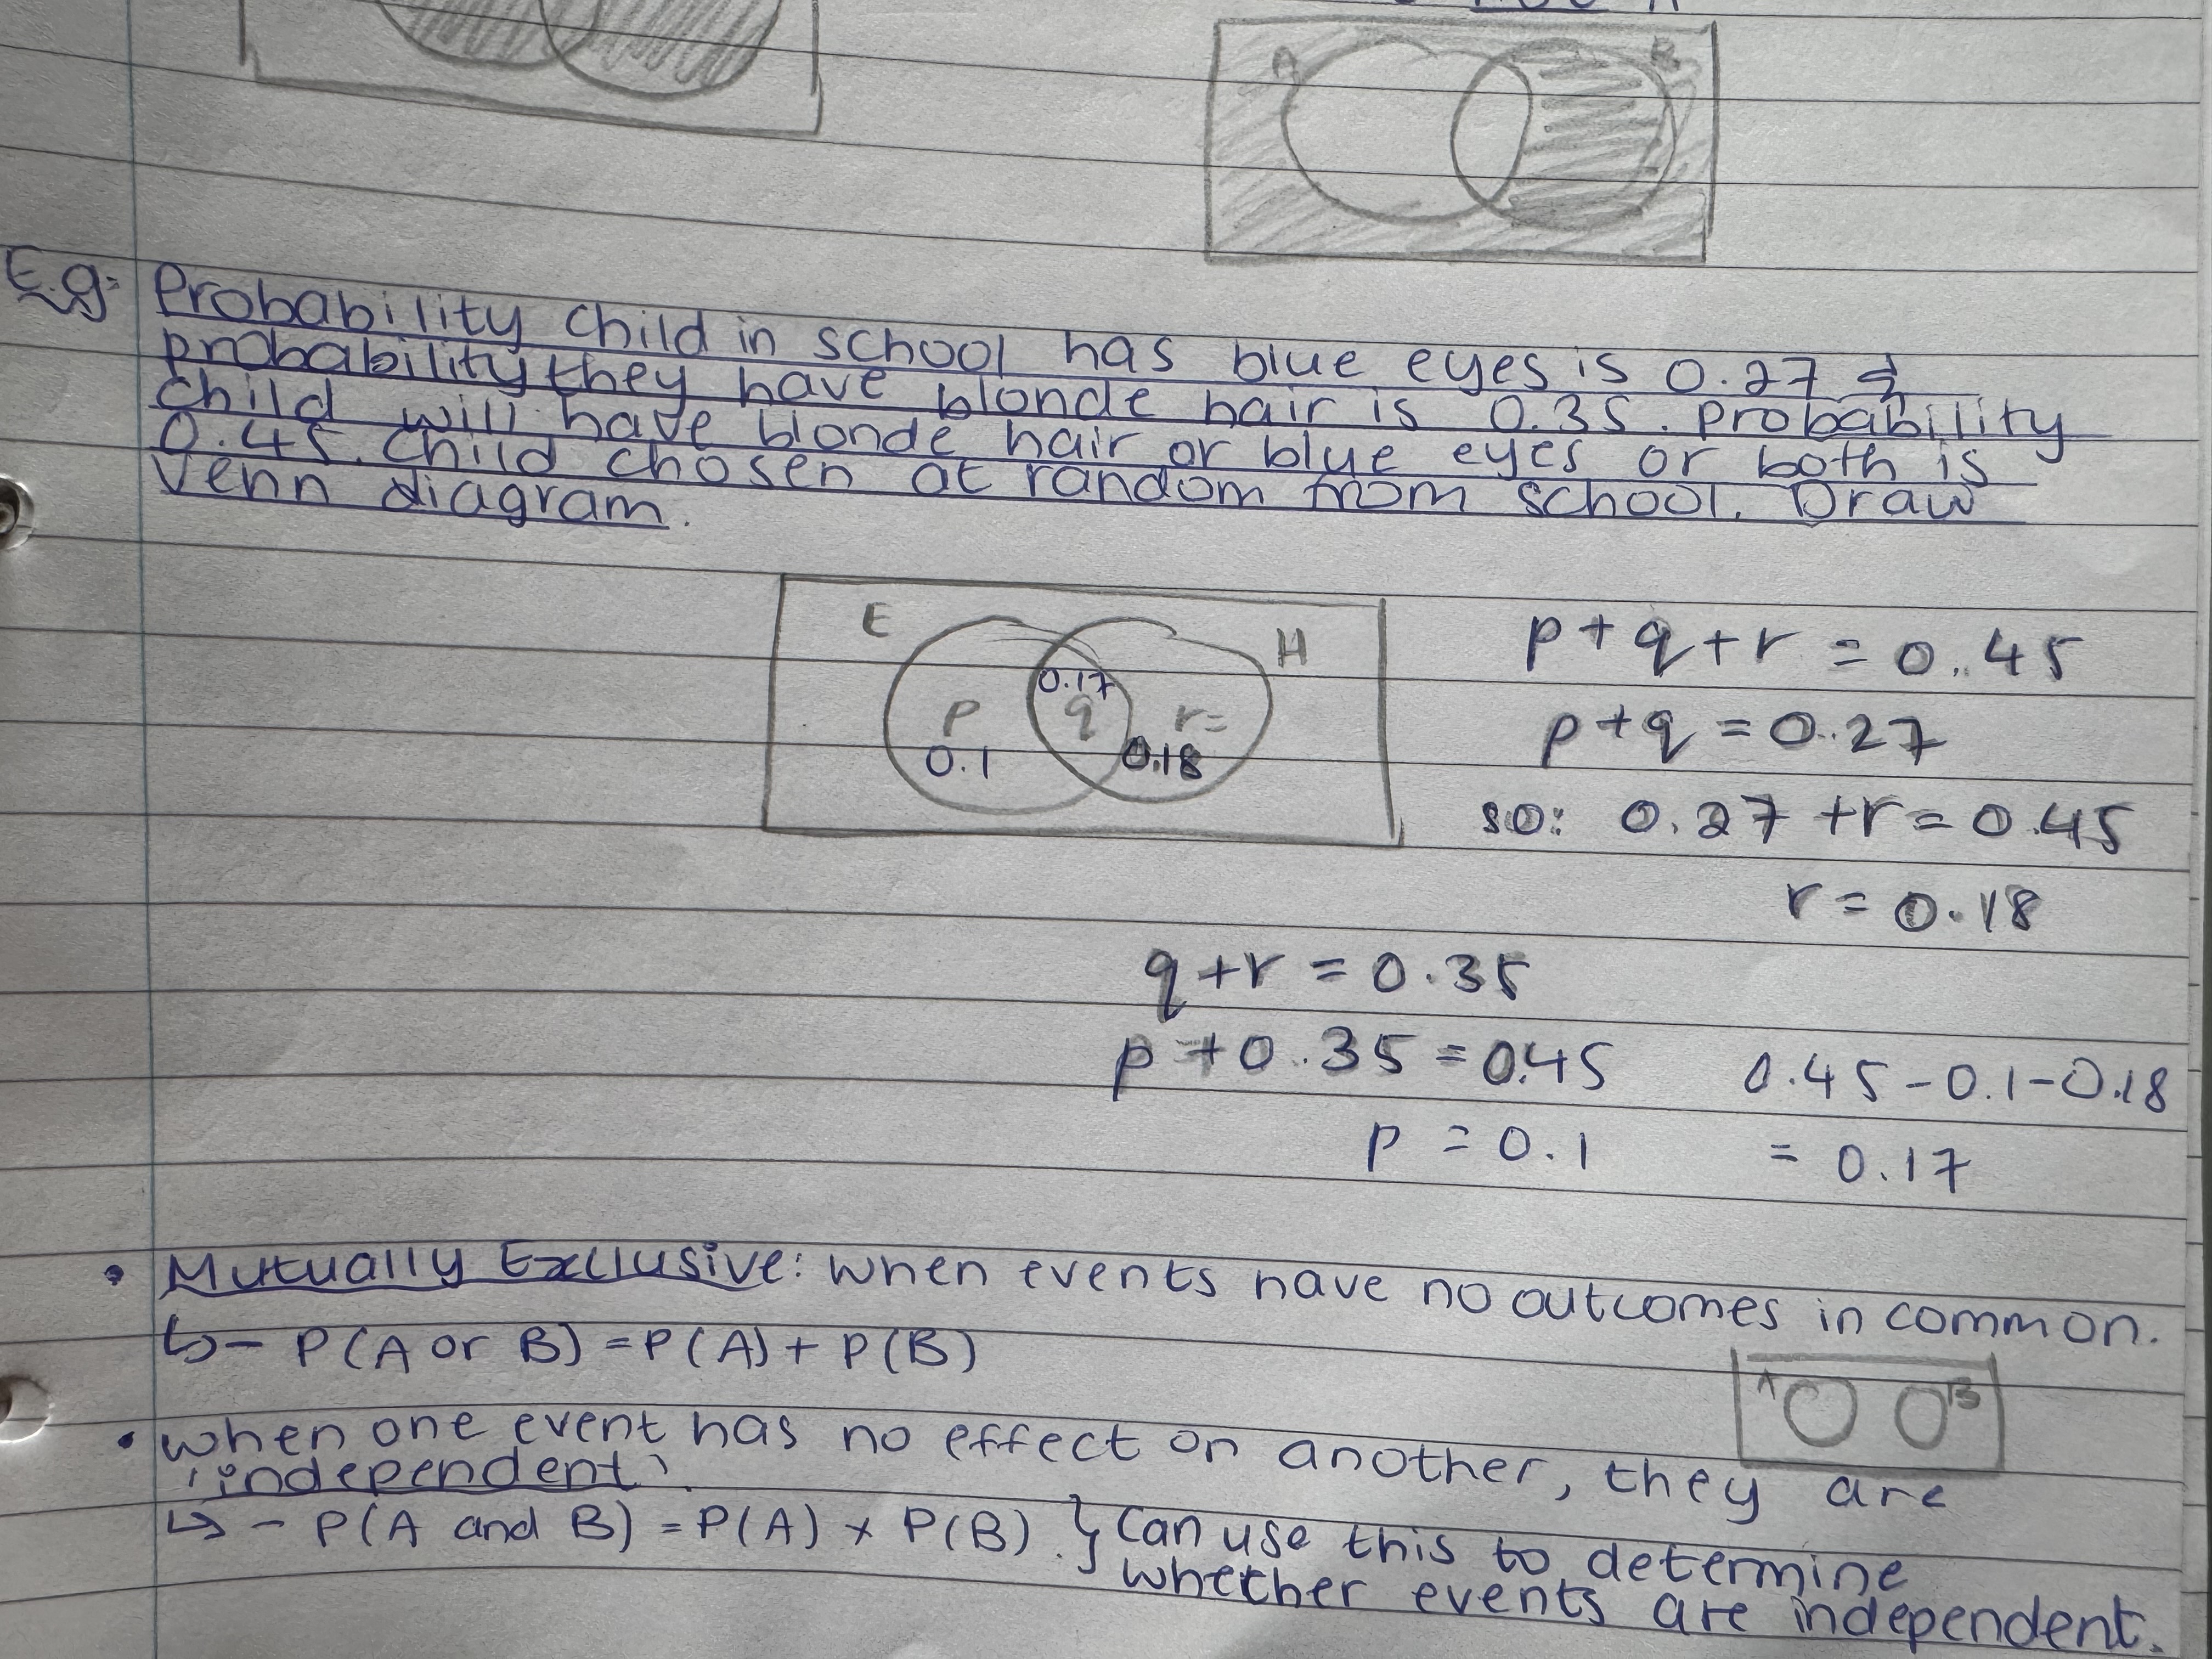 A B
E.g: Probability child in school has blue eyes is 0.27 &
probability they have blonde hair is 0.35. probability
child will have blonde hair or blue eyes or both is
0.45. Child chosen at random from school. Draw
venn diagram.
E H
0.17
p q r=
0.1 0.18
p+q+r = 0.45
p+q = 0.27
so: 0.27 +r = 0.45
r = 0.18
q+r = 0.35
p + 0.35 = 0.45 0.45-0.1-0.18
p = 0.1 = 0.17
• Mutually Exclusive: when events have no outcomes in common.
↳- P(A or B) = P(A) + P(B)
A B
• when one event has no effect on another, they are
'independent'.
↳- P(A and B) = P(A) x P(B). } Can use this to determine
whether events are independent.